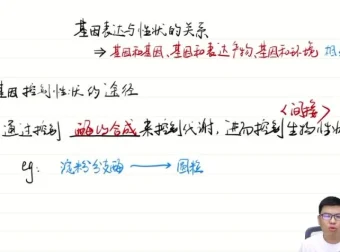 基因表达与性状的关系
⇒ 基因和基因、基因和表达产物、基因和环境
基因控制性状的途径
<间接>
通过控制 酶的合成来控制代谢，进而控制生物性状
eg: 淀粉分支酶 → 圆粒